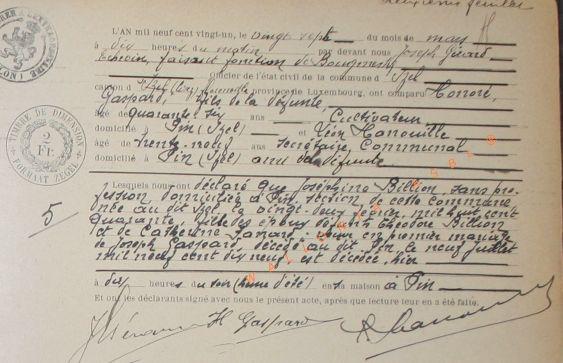 deuxième feuillet
TIMBRE DE DIMENSION
2 Fr.
FORMAAT ZEGEL
5
L'AN mil neuf cent vingt-un, le vingt sept du mois de mars
à dix heures du matin par devant nous Joseph Girard
Echevin, faisant fonction de Bourgmestre
Officier de l'état civil de la commune d' Izel
canton d' province de Luxembourg, ont comparu Honoré
Gaspard, fils de la défunte
âgé de quarante six ans Cultivateur
domicilié à Pin (Izel) et Léon Hanouille
âgé de trente neuf ans Secrétaire Communal
domicilié à Pin (Izel) ami de la défunte
Lesquels nous ont déclaré que Joséphine Billion, sans pro-
fession domiciliée à Pin, section de cette commune
née au dit Izel le vingt-deux février mil huit cent
quarante fille des époux défunts Théodore Billion
et de Catherine veuve en premier mariage
de Joseph Gaspard, décédé au dit Pin le neuf juillet
mil neuf cent dix neuf est décédée hier
à dix heures du soir (heure d'été) en sa maison à Pin
Et ont les déclarants signé avec nous le présent acte, après que lecture leur en a été faite.
H Gaspard